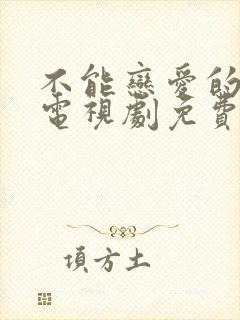 不能戀愛的
電視劇免費
項方土